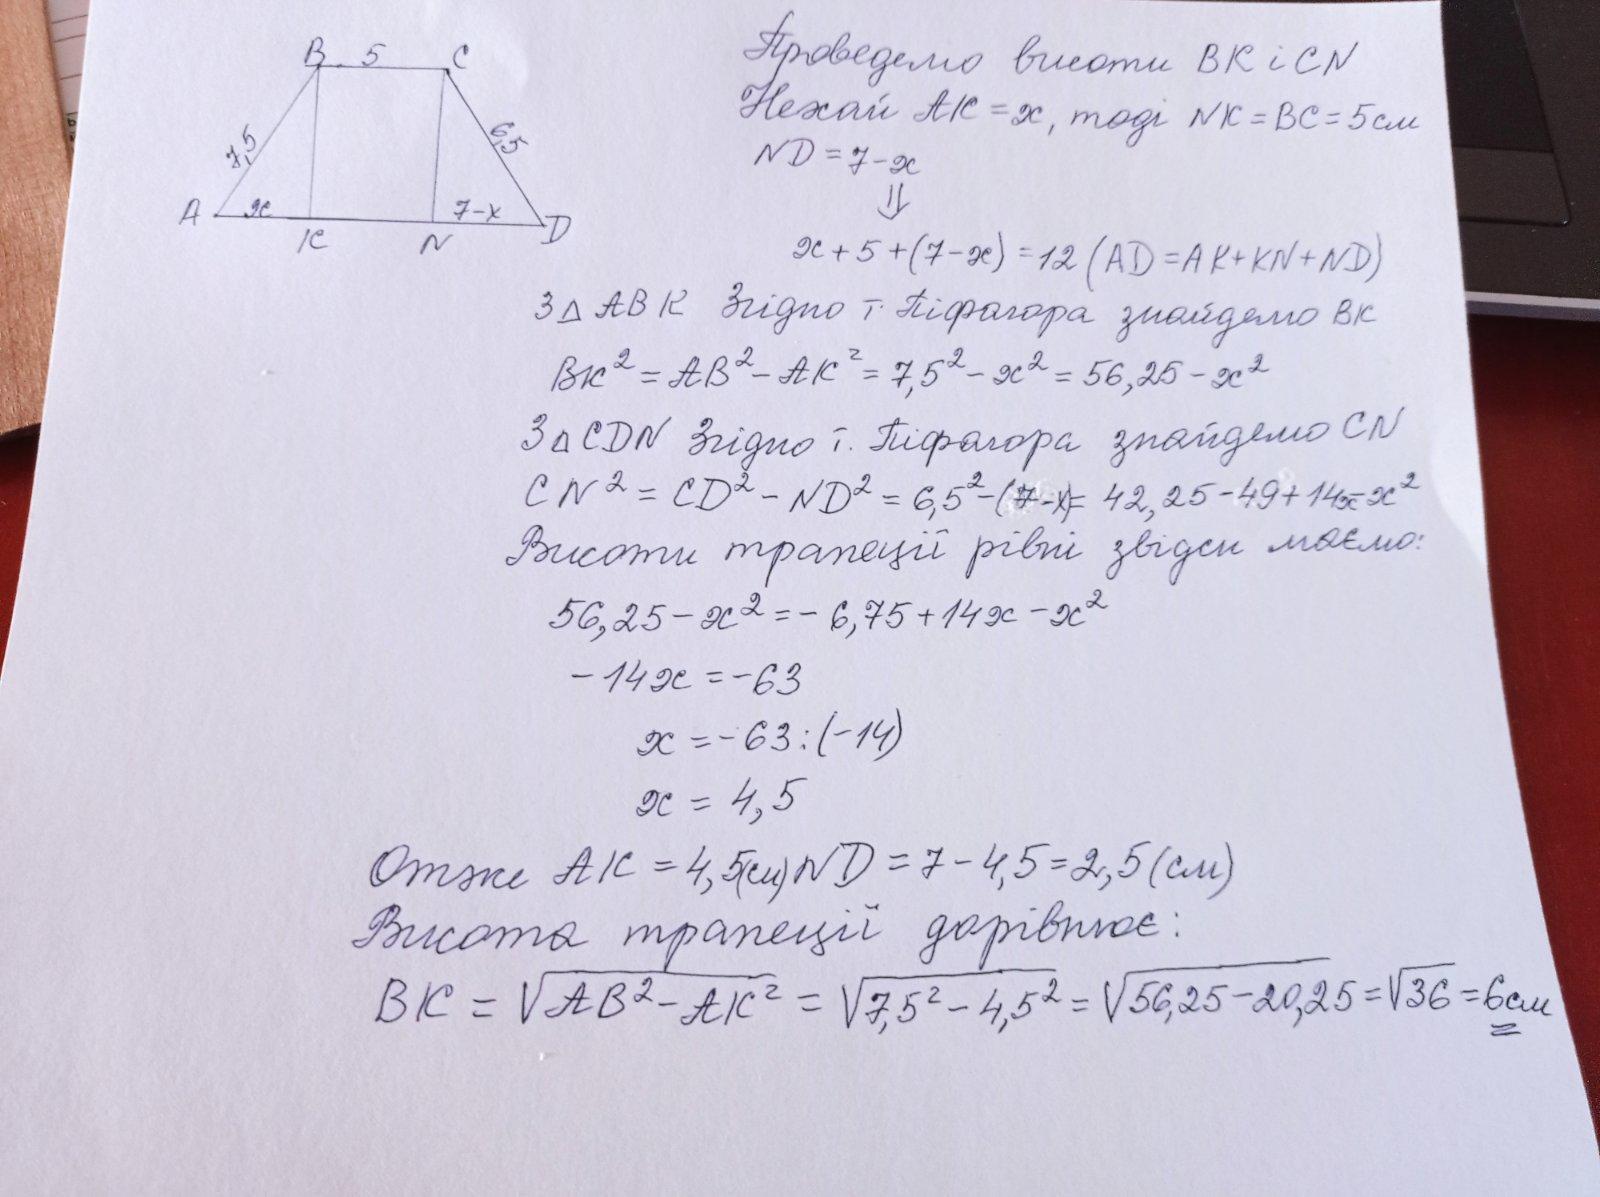 B 5 C
7,5
6,5
A x 7-x D
K N
Проведемо висоти BK і CN
Нехай AK = x, тоді NK = BC = 5 см
ND = 7 - x
⇓
x + 5 + (7 - x) = 12 (AD = AK + KN + ND)
З △ ABK Згідно т. Піфагора знайдемо BK
BK² = AB² - AK² = 7,5² - x² = 56,25 - x²
З △ CDN Згідно т. Піфагора знайдемо CN
CN² = CD² - ND² = 6,5² - (7 - x) = 42,25 - 49 + 14x - x²
Висоти трапеції рівні звідси маємо:
56,25 - x² = - 6,75 + 14x - x²
- 14x = - 63
x = - 63 : (-14)
x = 4,5
Отже AK = 4,5(см) ND = 7 - 4,5 = 2,5 (см)
Висота трапеції дорівнює:
BK = √AB² - AK² = √7,5² - 4,5² = √56,25 - 20,25 = √36 = 6 см